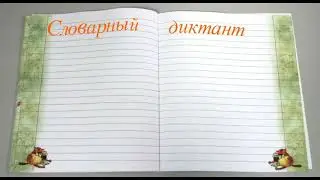 Словарный диктант